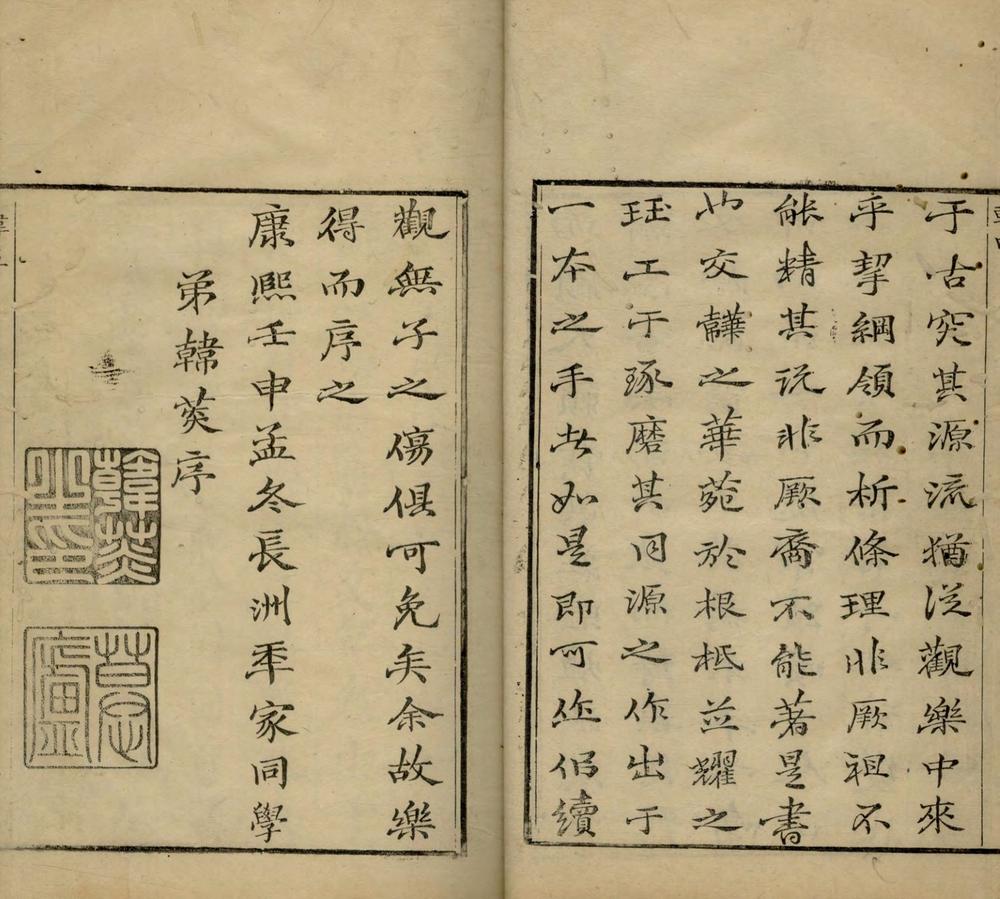 于古究其源流猶泛觀樂中來
乎挈綱領而析條理非厥祖不
能精其説非厥裔不能著是書
也交韡之華葩於根柢並耀之
珏工于琢磨其同源之作出于
一本之手者如是即可作伯續
觀無子之傷俱可免矣余故樂
得而序之
康熙壬申孟冬長洲年家同學
弟韓菼序
韓菼之印
慕廬